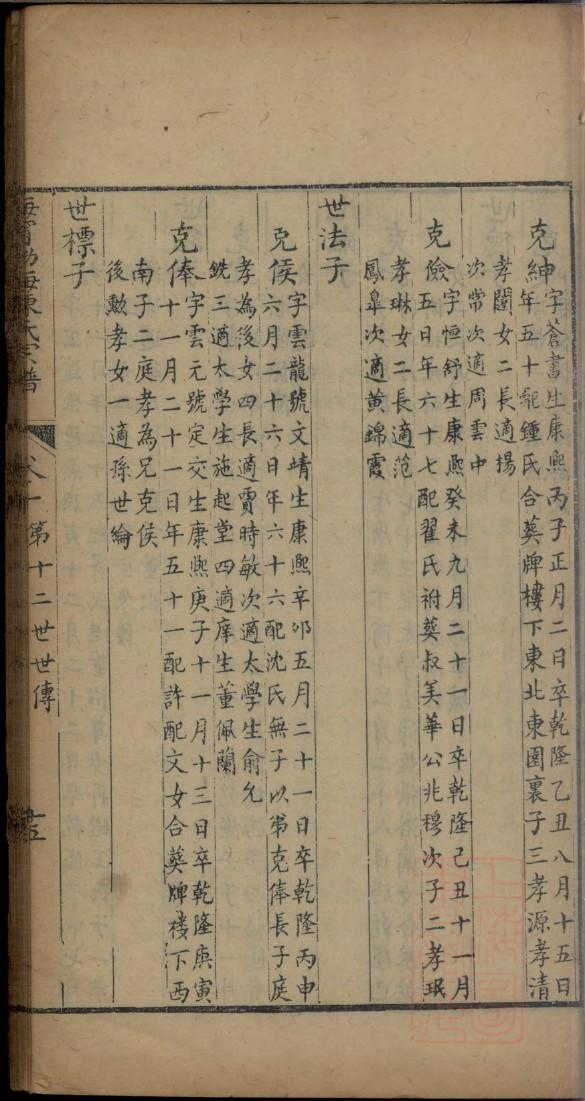 克紳字蒼書生康熙丙子正月二日卒乾隆乙丑八月十五日
年五十配鍾氏合葬牌樓下東北東圍裏子三孝源孝清
孝闓女二長適楊
次常次適周雲中
克儉字恒舒生康熙癸未九月二十一日卒乾隆己丑十一月
五日年六十七配翟氏祔葬叔美華公兆穆次子二孝珉
孝琳女二長適范
鳳臯次適黄錦霞
世法子
克侯字雲龍號文靖生康熙辛卯五月二十一日卒乾隆丙申
六月二十六日年六十六配沈氏無子以弟克俸長子庭
孝為後女四長適賈時敏次適太學生俞允
銑三適太學生施起堂四適庠生董佩蘭
克俸字雲元號定交生康熙庚子十一月十三日卒乾隆庚寅
十一月二十一日年五十一配許配文女合葬牌樓下西
南子二庭孝為兄克侯
後勳孝女一適孫世綸
世標子
海寧渤海陳氏宗譜
第十二世世傳